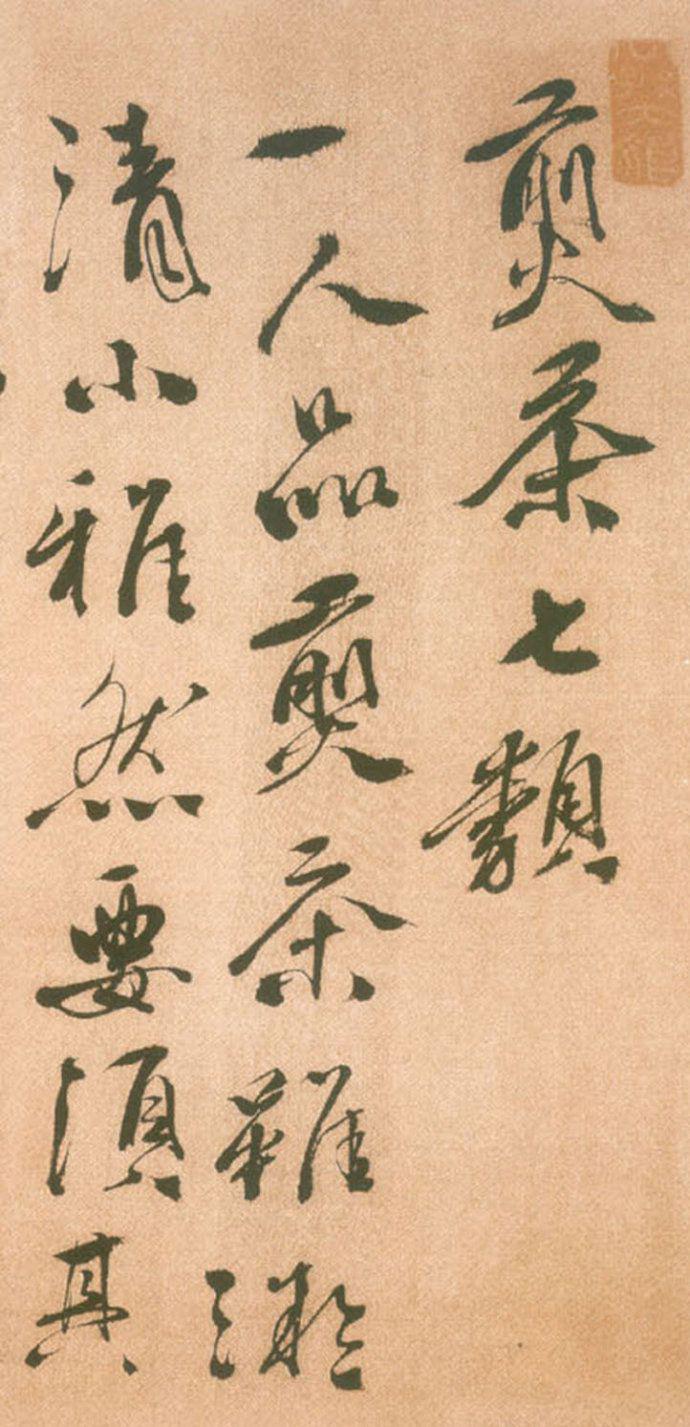 煎茶七類
一人品煎茶雖凝
清小雅然要須其